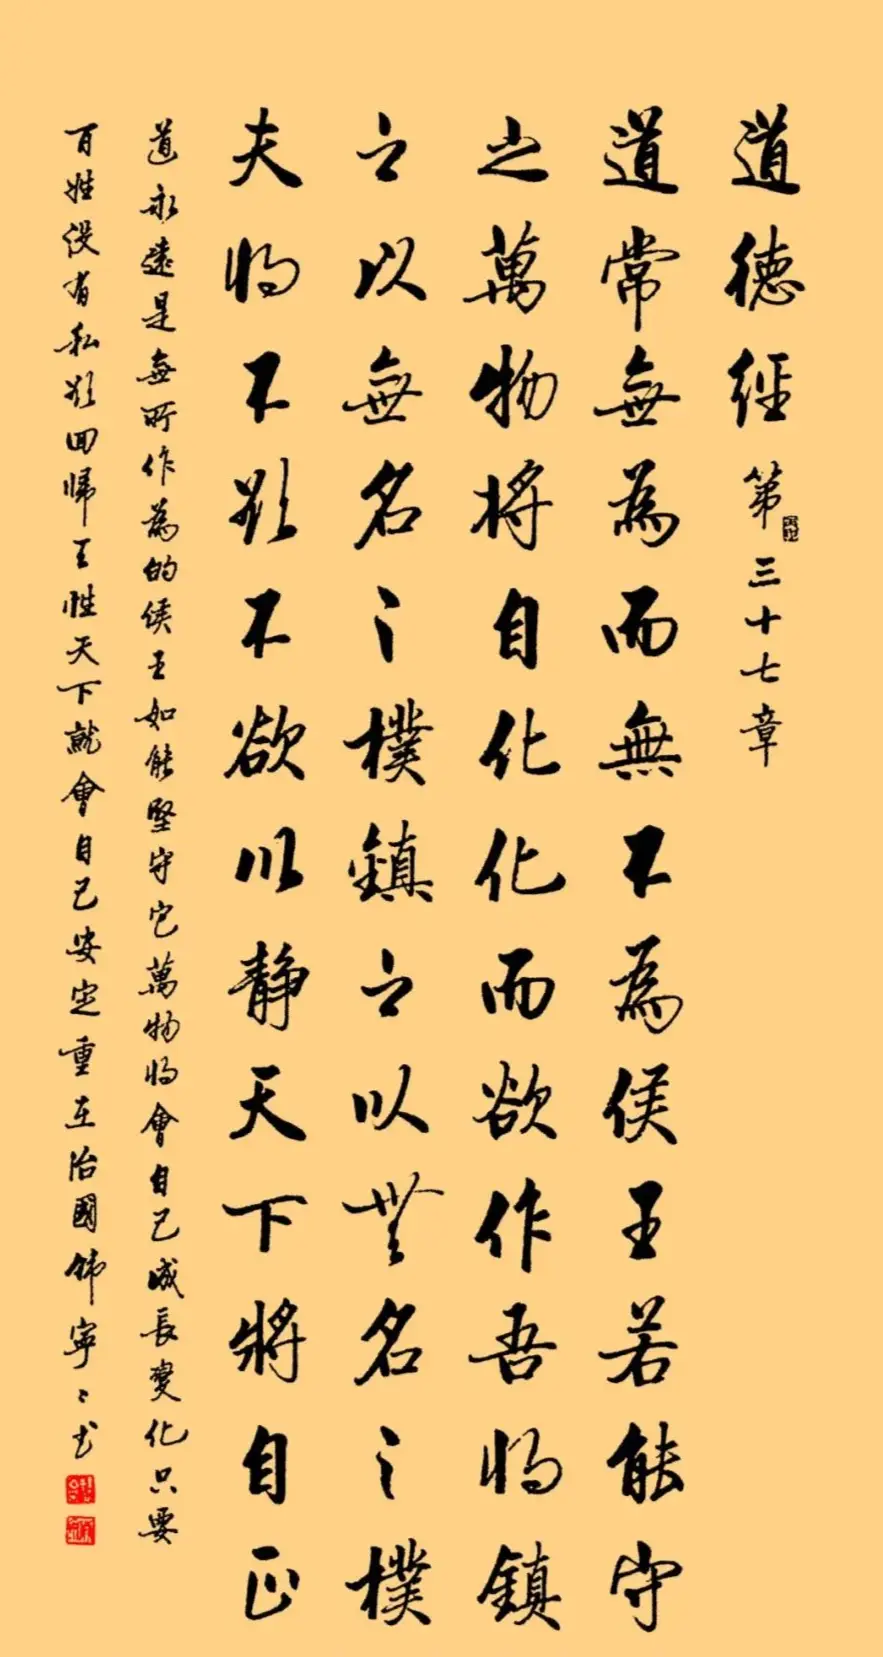 道德經第三十七章
道常無為而無不為侯王若能守
之萬物將自化化而欲作吾將鎮
之以無名之樸鎮之以無名之樸
夫將不欲不欲以靜天下將自正
道永遠是無所作為的侯王如能堅守它萬物將會自己成長變化只要
百姓沒有私欲回歸王性天下就會自己安定重在治國